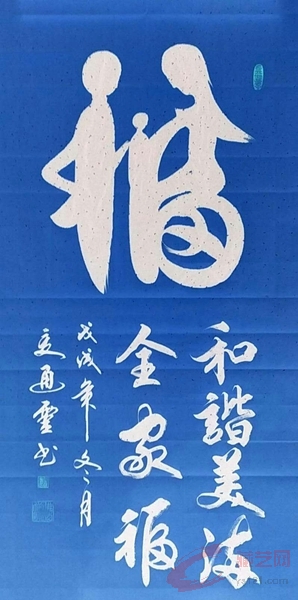 福
和諧美满
全家福
戊戌年冬月
通靈书